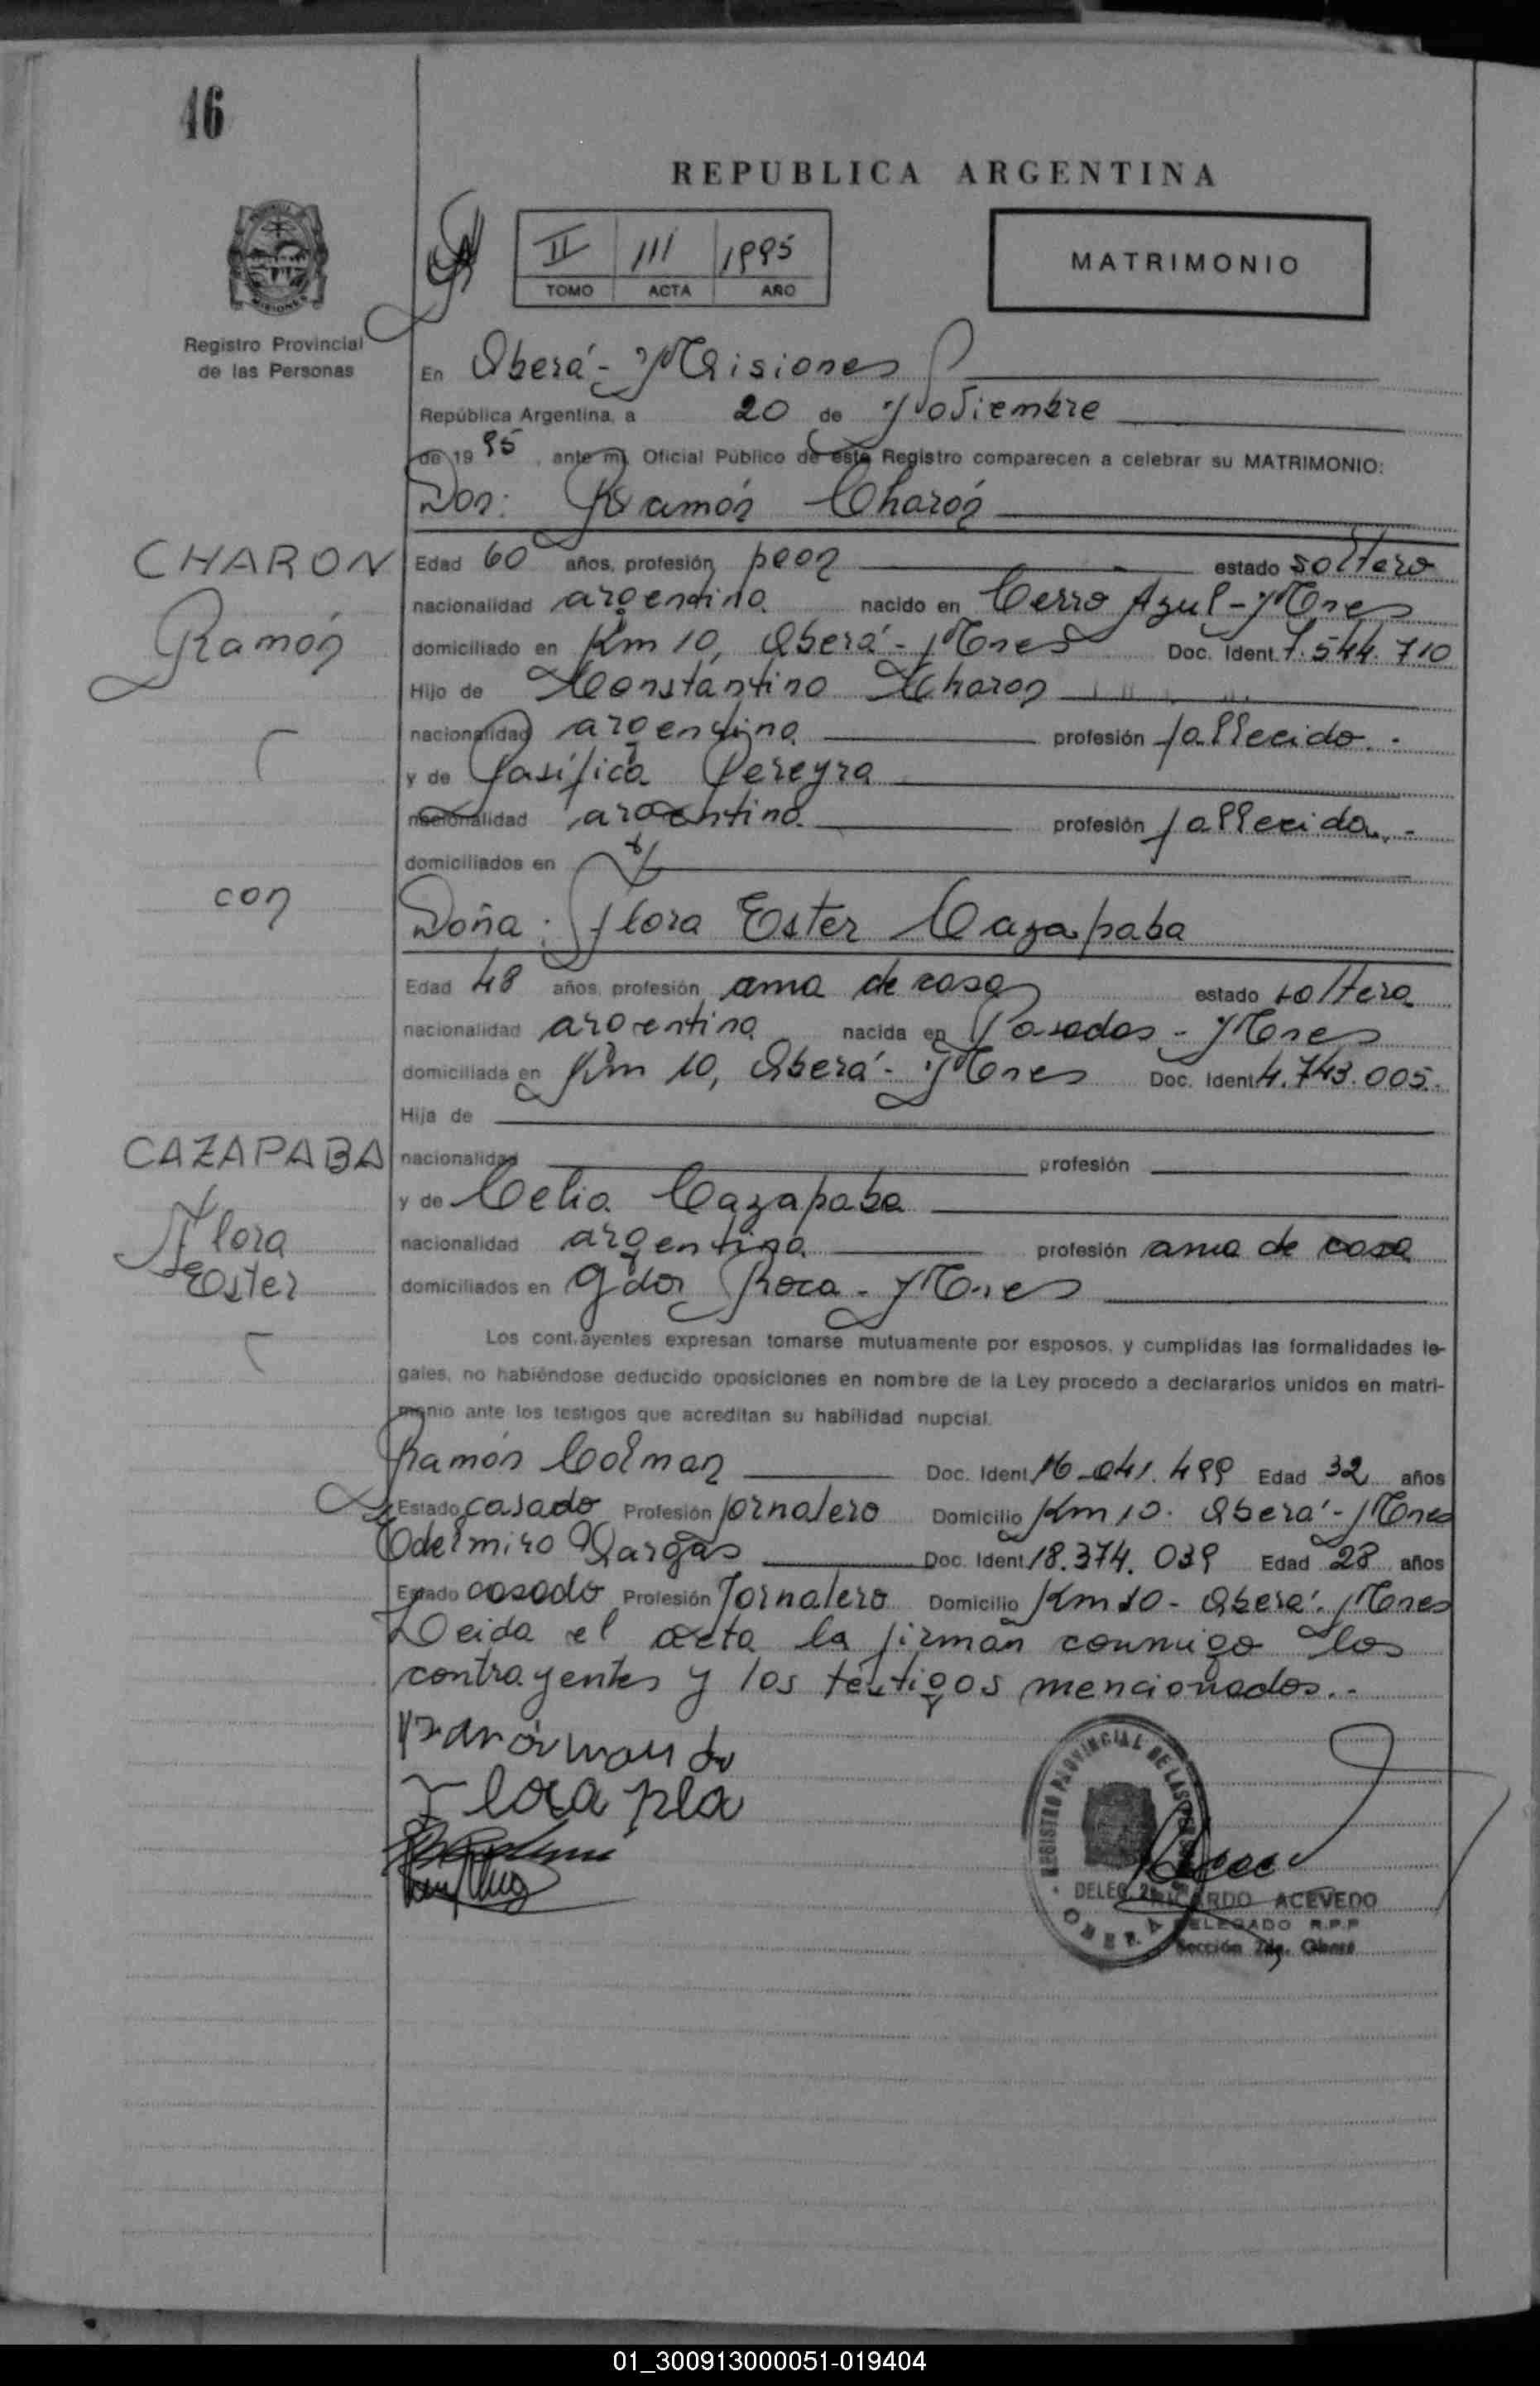 46
REPUBLICA ARGENTINA
II 111 1995
TOMO ACTA AÑO
MATRIMONIO
Registro Provincial
de las Personas
En Oberá - Misiones
República Argentina, a 20 de Noviembre
de 19 95, ante mí, Oficial Público de este Registro comparecen a celebrar su MATRIMONIO:
Don: Ramón Charón
CHARON
Ramón
Edad 60 años, profesión peon estado soltero
nacionalidad argentina nacido en Cerro Azul - Mnes
domiciliado en Km 10, Oberá - Mnes Doc. Ident. 7.544.710
Hijo de Constantino Charon
nacionalidad argentina profesión fallecido.-
y de Pasífica Pereyra
nacionalidad argentina profesión fallecida.-
domiciliados en
con
Doña: Flora Ester Cazapaba
Edad 48 años, profesión ama de casa estado soltera
nacionalidad argentina nacida en Posadas - Mnes
domiciliada en Km 10, Oberá - Mnes Doc. Ident. 4.743.005.
Hija de
CAZAPABA
Flora
Ester
nacionalidad profesión
y de Celia Cazapaba
nacionalidad argentina profesión ama de casa
domiciliados en Gdor Roca - Mnes
Los contrayentes expresan tomarse mutuamente por esposos, y cumplidas las formalidades le-
gales, no habiéndose deducido oposiciones en nombre de la Ley procedo a declararlos unidos en matri-
monio ante los testigos que acreditan su habilidad nupcial.
Ramón Colman Doc. Ident. 16.041.499 Edad 32 años
Estado casado Profesión jornalero Domicilio Km 10. Oberá - Mnes
Odelmiro Vargas Doc. Ident. 18.374.039 Edad 28 años
Estado casado Profesión Jornalero Domicilio Km 10 - Oberá - Mnes
Leida el acta la firman conmigo los
contrayentes y los testigos mencionados.-
Flora
REGISTRO PROVINCIAL DE LAS PERSONAS
DELEG. 2
OBERA
RICARDO ACEVEDO
DELEGADO R.P.P.
Sección 2da. Oberá
01_300913000051-019404